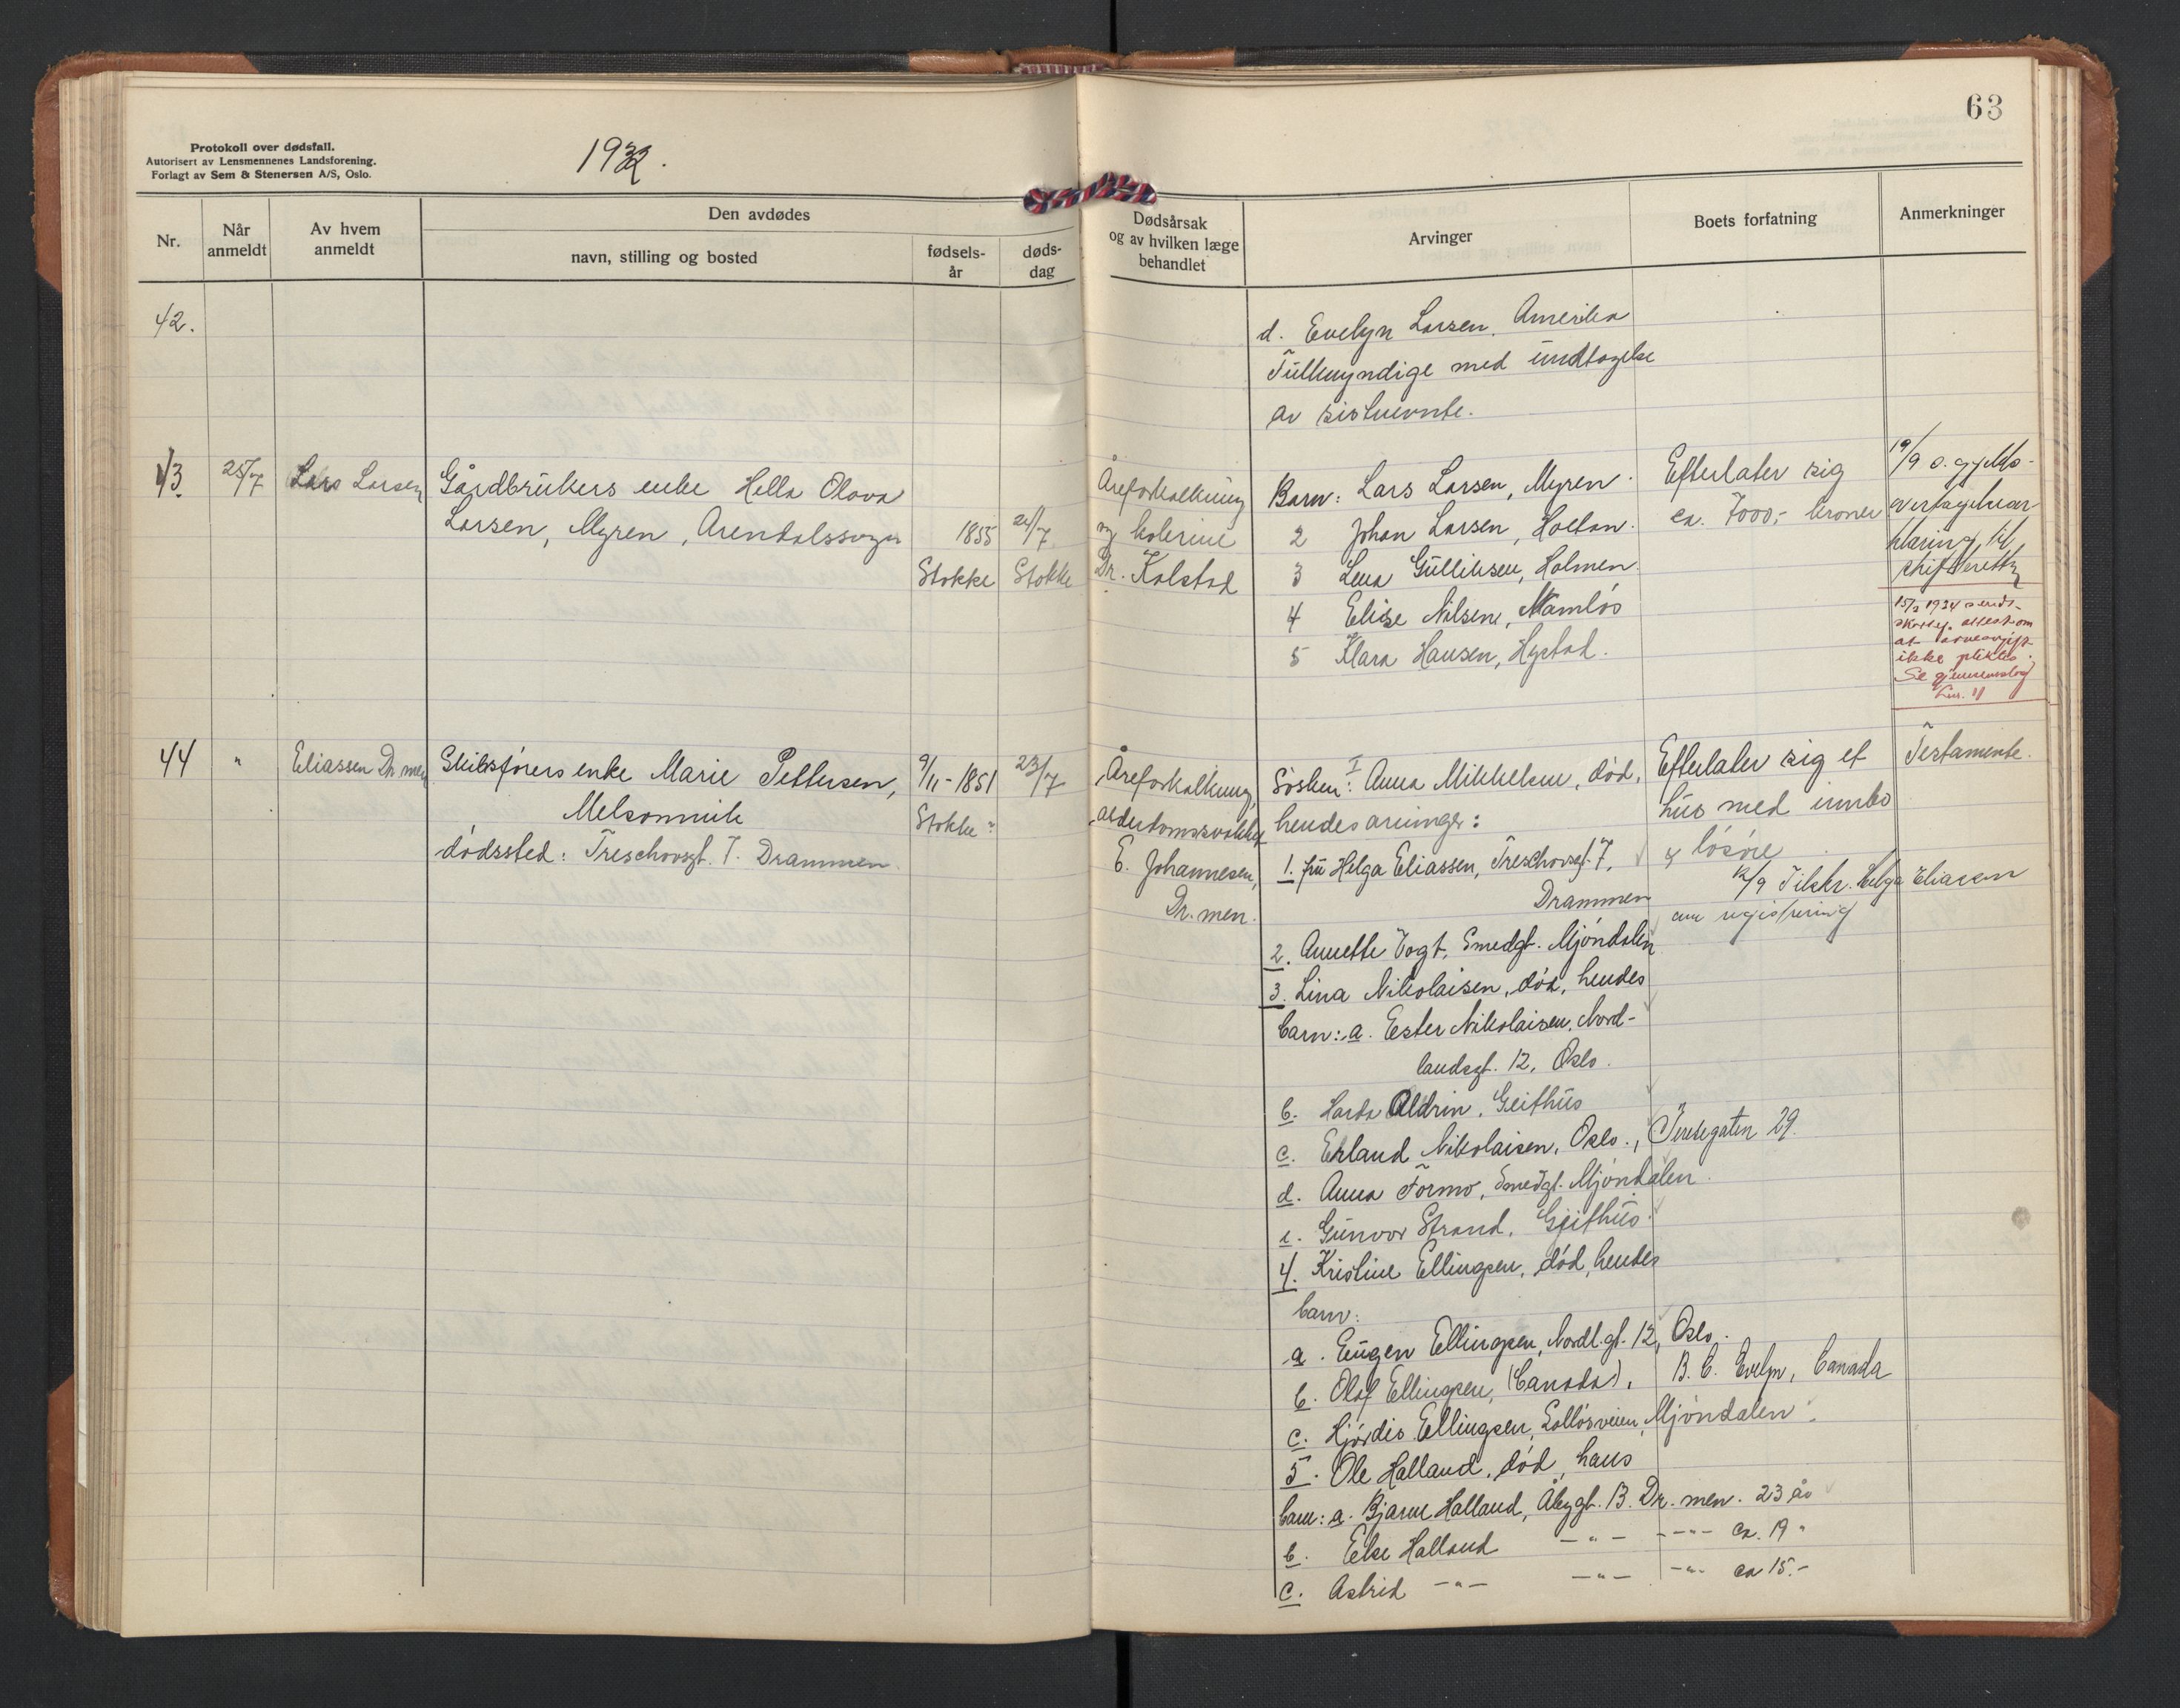 63
Protokoll over dødsfall.
Autorisert av Lensmennenes Landsforening.
Forlagt av Sem & Stenersen A/S, Oslo.
1932.
Nr.
Når anmeldt
Av hvem anmeldt
Den avdødes
navn, stilling og bosted
fødsels-år
døds-dag
Dødsårsak og av hvilken læge behandlet
Arvinger
Boets forfatning
Anmerkninger
42.
d. Evelyn Larsen, Amerika
Fullmyndige med undtagelse
av sistnevnte.
43.
25/7
Lars Larsen
Gårdbrukers enke Hella Olava
Larsen, Myren, Arendalssogn
1855
Stokke
24/7
Stokke
Åreforkalkning
og kolerine
Dr. Kolstad
Barn: Lars Larsen, Myren.
2 Johan Larsen, Holtan.
3 Lena Gulliksen, Holmen
4 Elise Nilsen, Namløs
5 Klara Hansen, Hystad.
Efterlater sig
ca. 7000,- kroner
19/9 o. gjelds-
overtagelseser-
klæring til
skifteretten
15/2 1934 sends.
skortej. attest om
at arveavgift
ikke pliktes.
Se gjennemslag
Lnr. 11
44
"
Eliassen Dr.men
Skibsførers enke Marie Pettersen,
Melsomvik
dødssted: Treschowsgt. 7. Drammen.
9/11-1851
Stokke?
23/7
Åreforkalkning,
alderdomssvakhet
E. Johannesen,
Dr.men.
Søsken: I Anna Mikkelsen, død,
hendes arvinger:
1. fru Helga Eliassen, Treschowsgt. 7,
Drammen
2. Annette Vogt, Smedgt. Mjøndalen
3. Lina Nikolaisen, død, hendes
barn: a. Ester Nikolaisen, Nord-
landsgt. 12, Oslo.
b. Harda Aldrin, Geithus
c. Erland Nikolaisen, Oslo., Teresegaten 29.
d. Anna Formo, Smedgt. Mjøndalen.
e. Gunvor Strand, Gjeithus.
4. Kristine Ellingsen, død, hendes
barn:
a. Eugen Ellingsen, Nordl.gt. 12, Oslo.
b. Olaf Ellingsen, (Canada), B. C. Evelyn, Canada
c. Hjørdis Ellingsen, Solløsveien, Mjøndalen.
5. Ole Halland, død, hans
barn: a. Bjarne Halland, Åbygt. 13. Dr.men. 23 år
b. Else Halland -"- -"- ca. 19 "
c. Astrid -"- -"- -"- ca 15.-
Efterlater sig et
hus med innbo
& løsøre
12/9 Tilskr. Helga Eliassen
om registrering
Testamente.